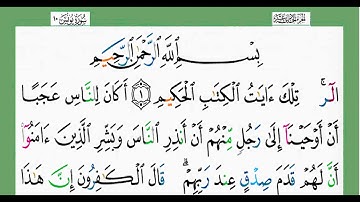 سورة يونس ١٠
بِسْمِ ٱللَّهِ ٱلرَّحْمَٰنِ ٱلرَّحِيمِ
الٓرۚ تِلْكَ ءَايَٰتُ ٱلْكِتَٰبِ ٱلْحَكِيمِ ١ أَكَانَ لِلنَّاسِ عَجَبًا
أَنْ أَوْحَيْنَآ إِلَىٰ رَجُلٍ مِّنْهُمْ أَنْ أَنذِرِ ٱلنَّاسَ وَبَشِّرِ ٱلَّذِينَ ءَامَنُوٓا۟
أَنَّ لَهُمْ قَدَمَ صِدْقٍ عِندَ رَبِّهِمْۗ قَالَ ٱلْكَٰفِرُونَ إِنَّ هَٰذَا